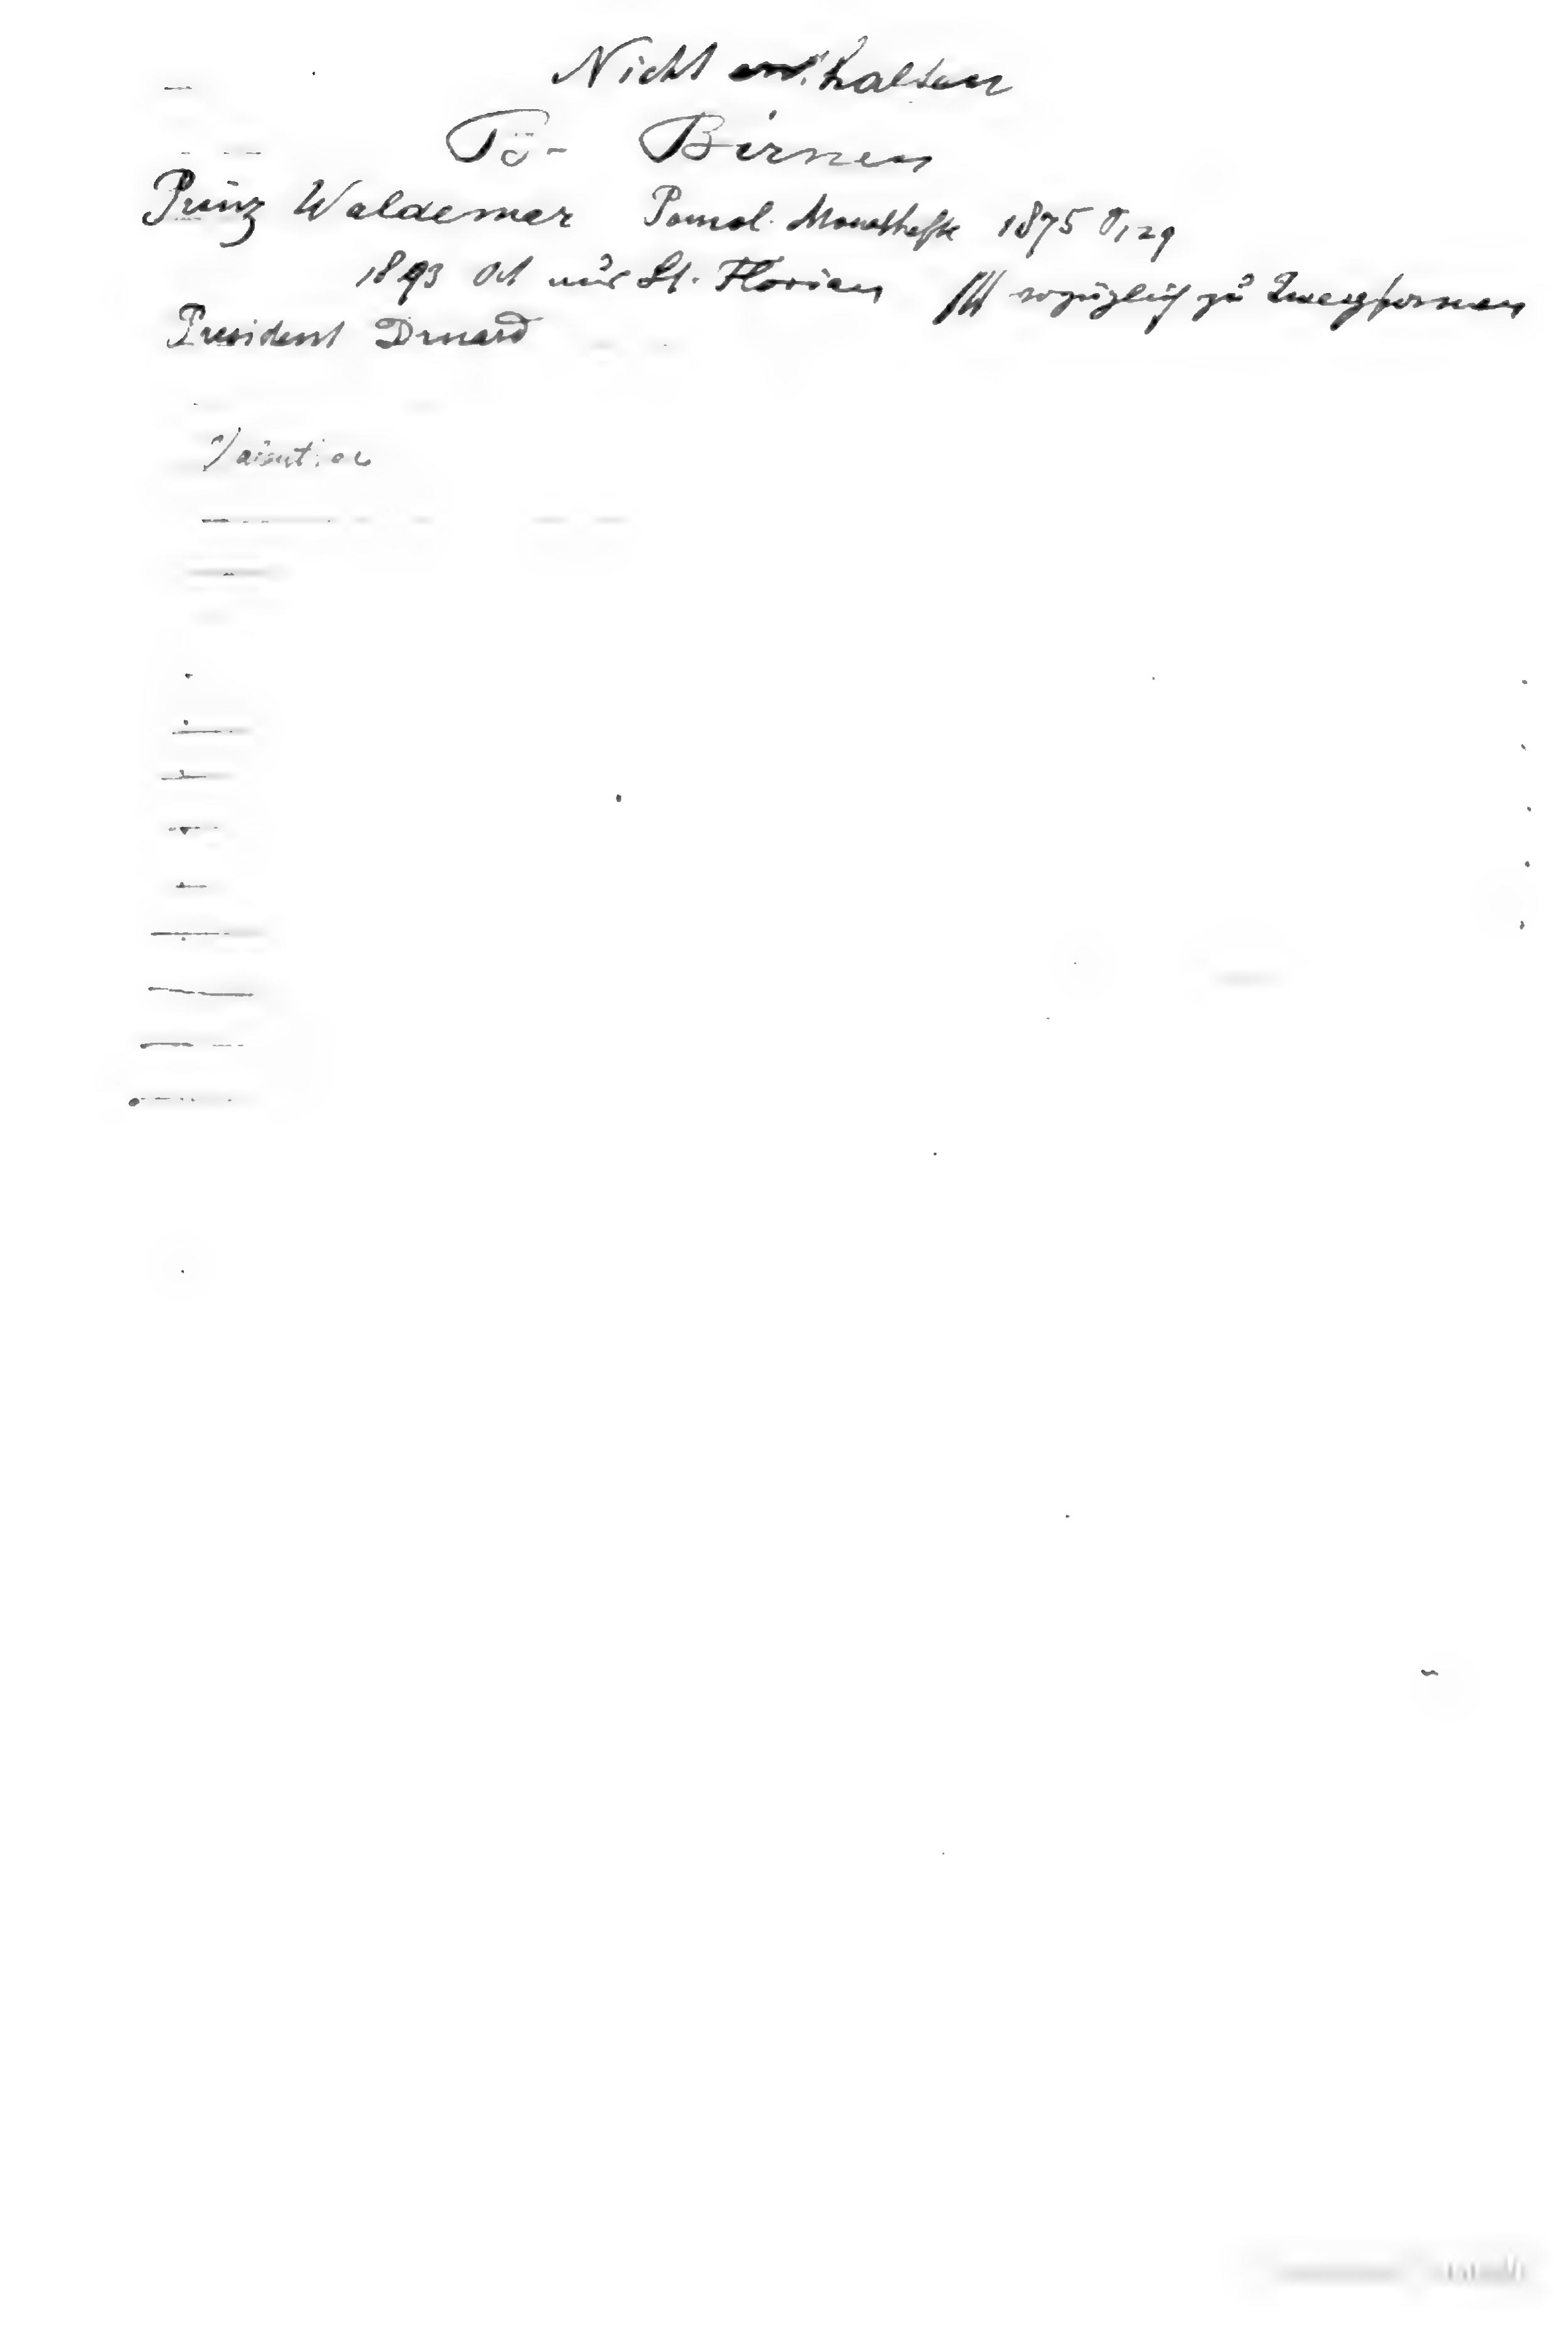 Nicht enthalten
Tö- Birnen
Prinz Waldemar Pomol. Monatshefte 1875
1893 Oct nur St. Florian vorzüglich zu Zwergformen
President Druard